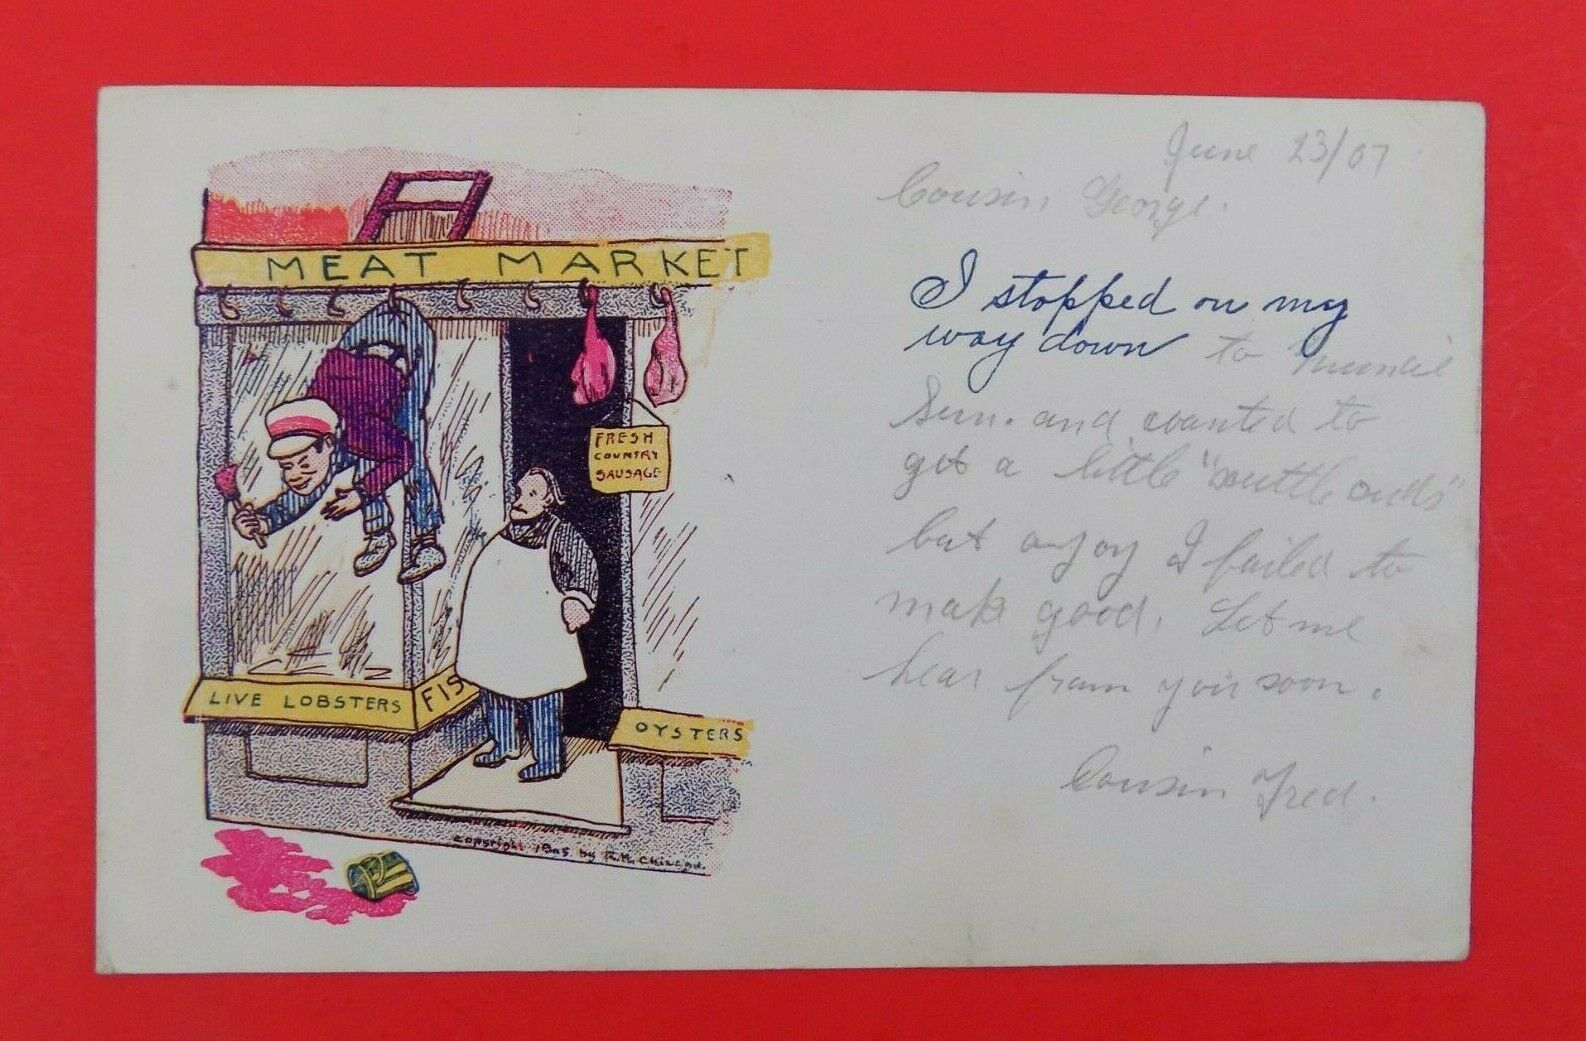 MEAT MARKET
FRESH
COUNTRY
SAUSAGE
LIVE LOBSTERS
FIS
OYSTERS
Copyright 1905 by R.H. Chicago.
June 23/07
Cousin George.
I stopped on my
way down to Muncie
Sun. and wanted to
get a little "cuttle
but I failed to
make good. Let me
hear from you soon.
Cousin Fred.